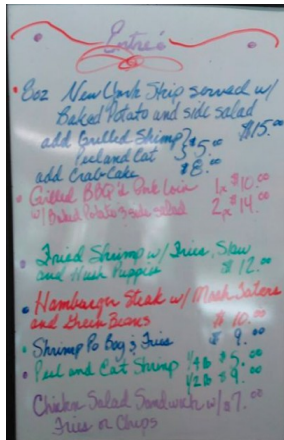 Entreé
8oz New York Strip served w/
Baked Potato and side salad
$15.00
add Grilled Shrimp }
Peel and Eat } $5.00
add Crab Cake $8.00
Grilled BBQ'd Pork Loin 1x $10.00
w/ Baked Potato & side salad 2x $14.00
Fried Shrimp w/ Fries, Slaw
and Hush Puppies $12.00
Hamburger Steak w/ Mash Taters
and Green Beans $10.00
Shrimp Po Boy & Fries $9.00
Peel and Eat Shrimp 1/4 lb $5.00
1/2 lb $9.00
Chicken Salad Sandwich w/ $7.00
Fries or Chips